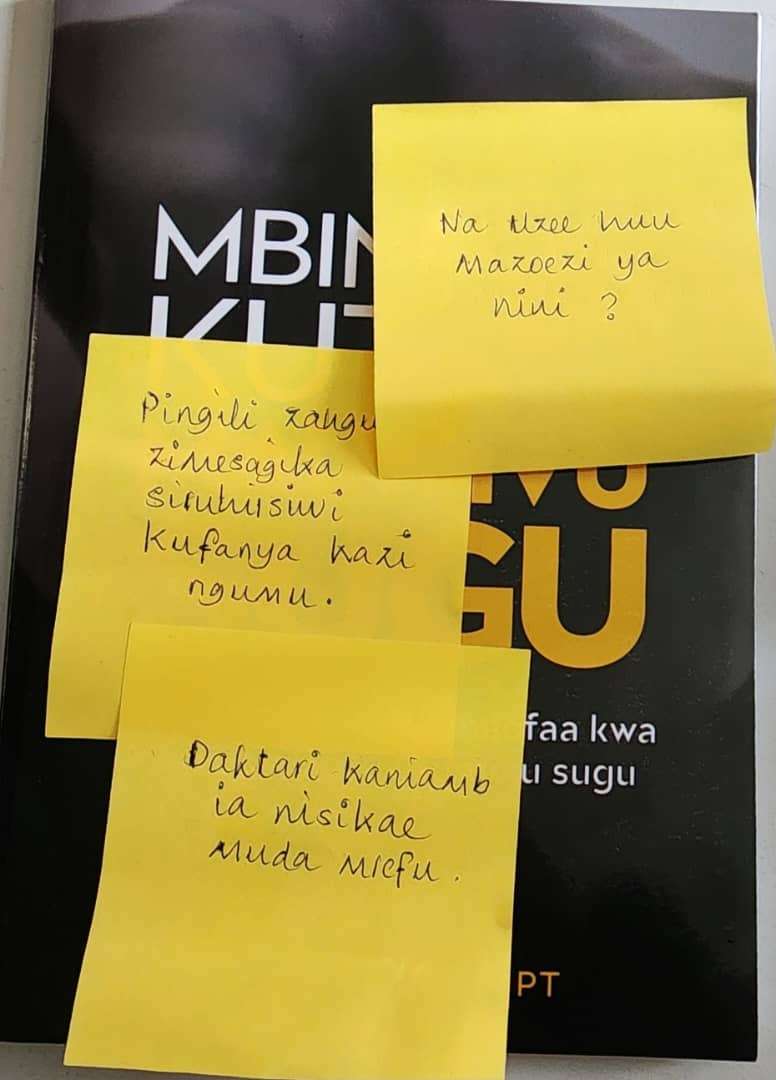 MBIN
KUT
Na Uzee huu
Mazoezi ya
nini ?
Pingili zangu
zimesagika
siruhusiwi
kufanya kazi
ngumu.
VU
GU
faa kwa
u sugu
Daktari kaniamb
ia nisikae
muda mrefu.
PT